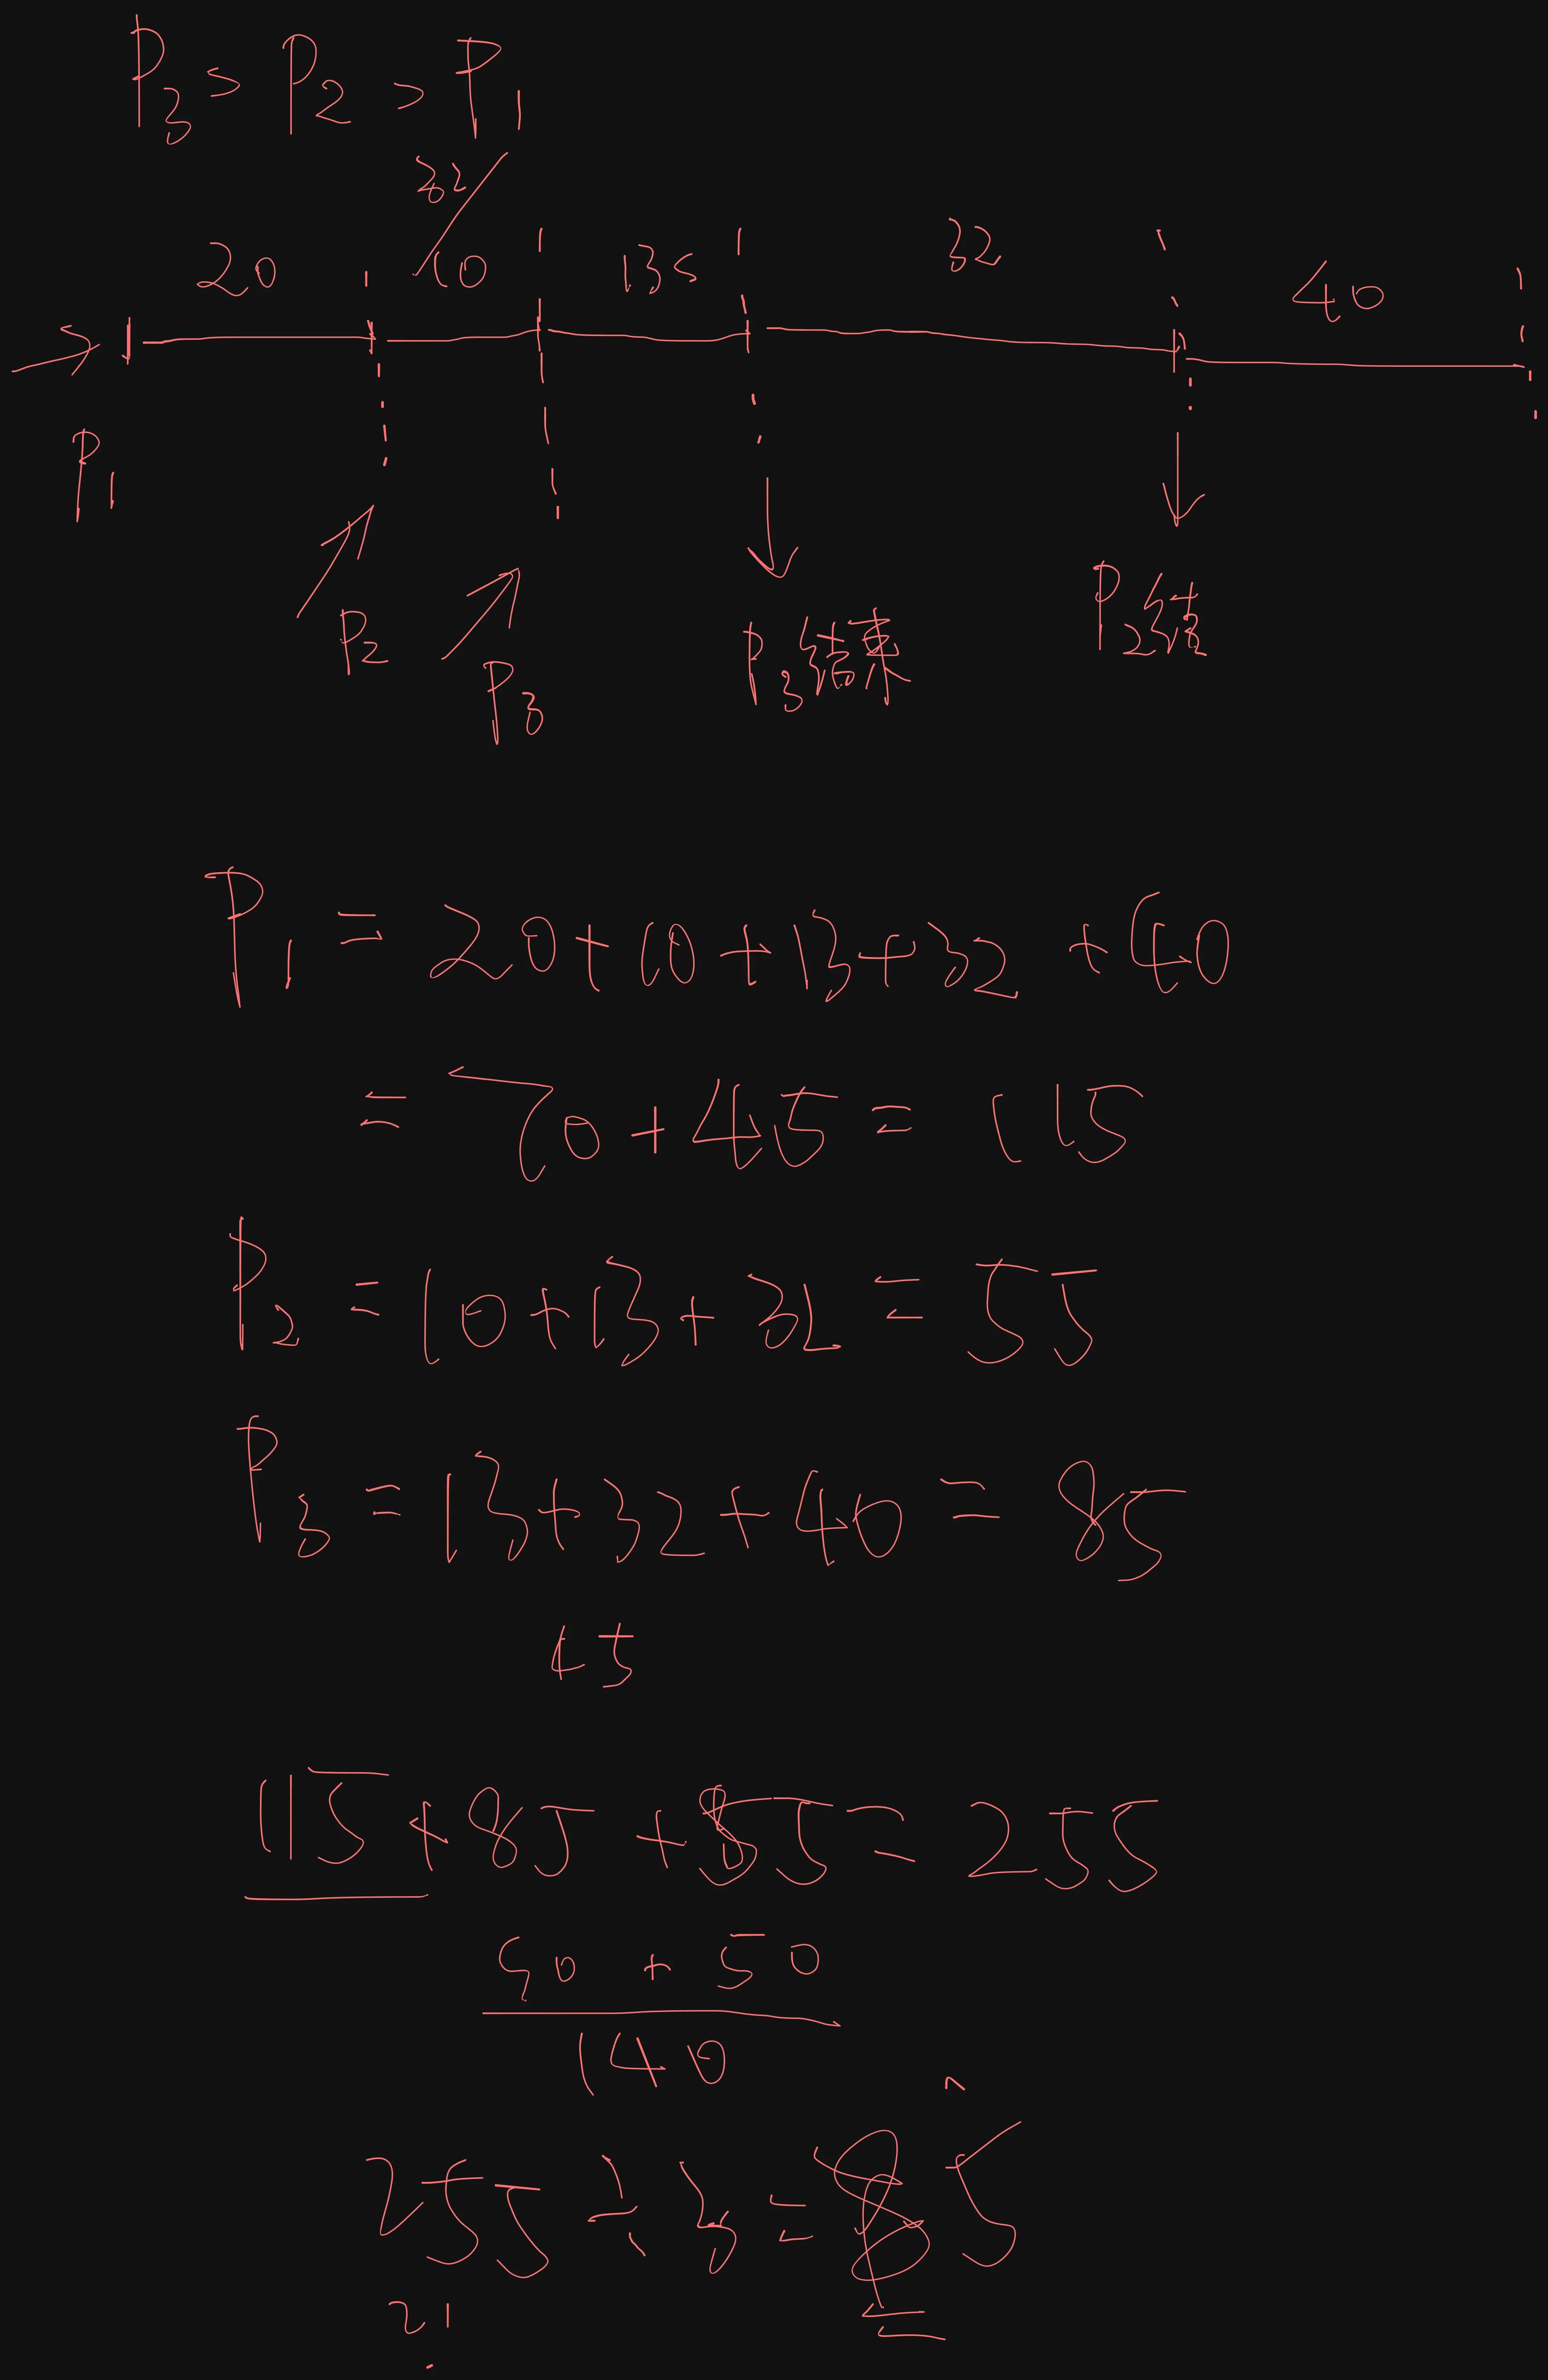 P3 > P2 > P1
32
20 10 13s 32 40
P1
P2
P3
P3结束
P2结束
P1 = 20+10+13+32+40
= 70+45 = 115
P2 = 10+13+32 = 55
P3 = 13+32+40 = 85
45
115+85+55 = 255
90 + 50
140
255 ÷ 3 = 85
21